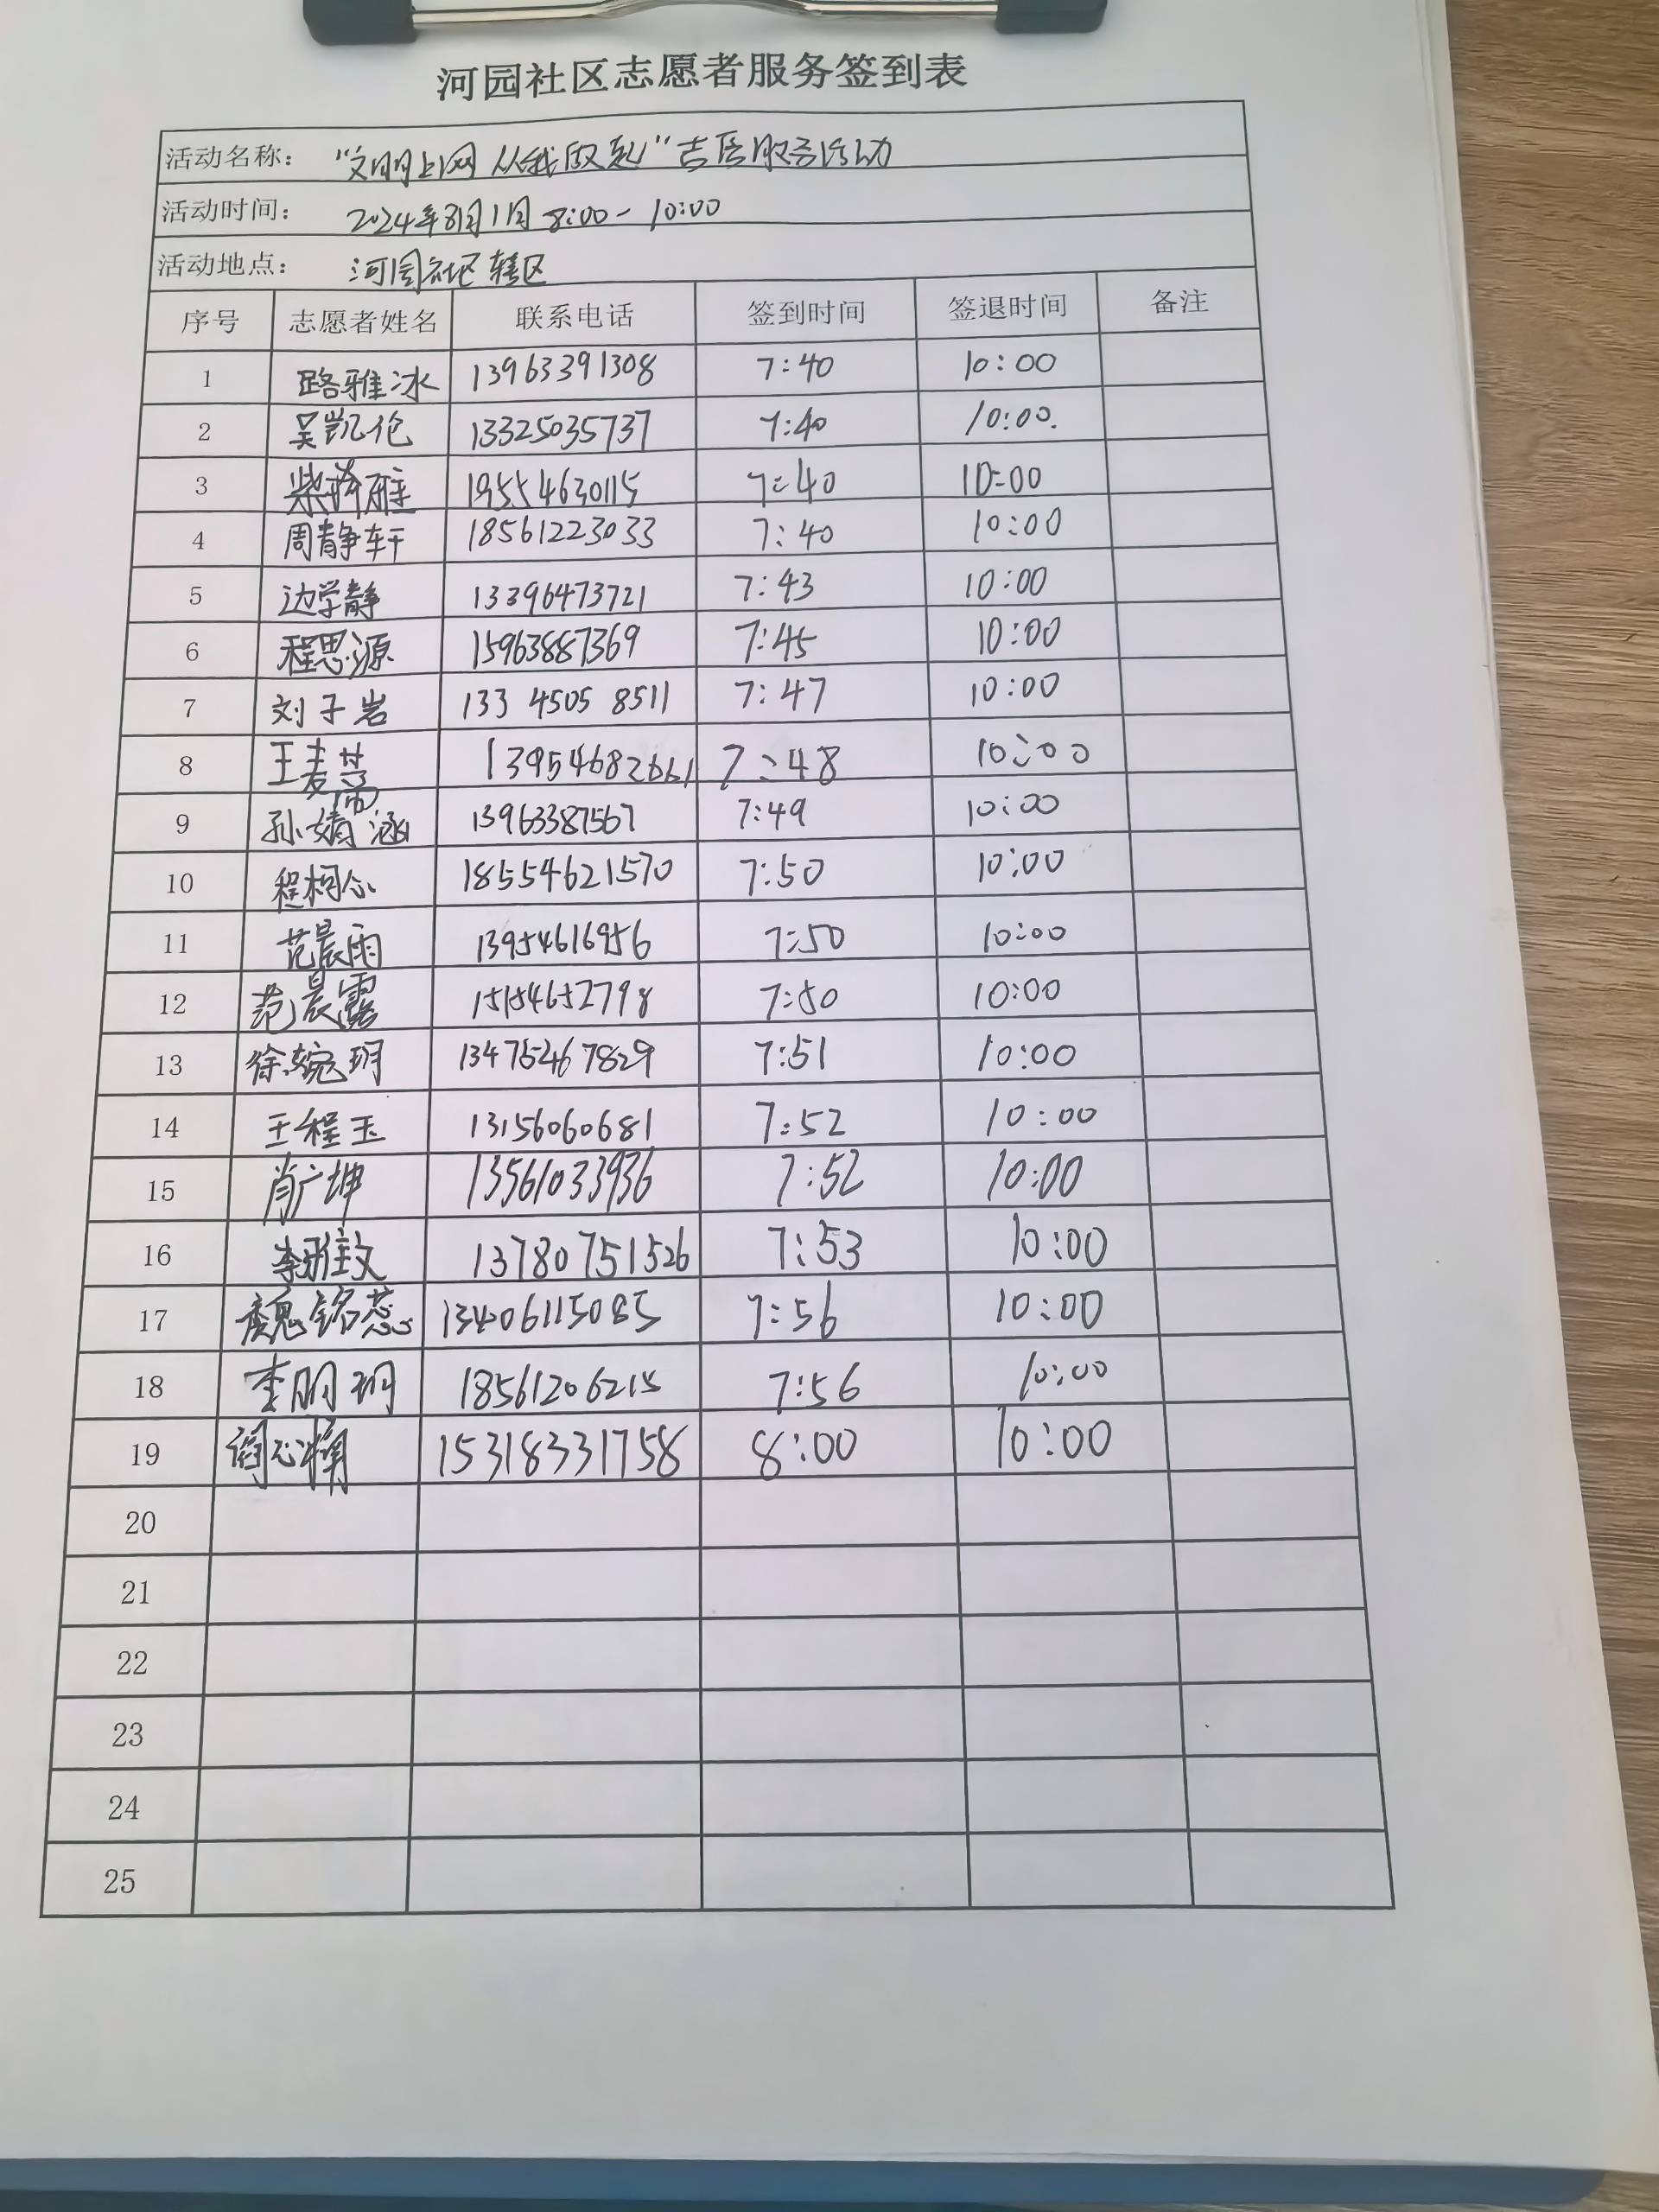 河园社区志愿者服务签到表
活动名称: "文明上网 从我做起"志愿服务活动
活动时间: 2024年8月1日 8:00-10:00
活动地点: 河园社区辖区
序号 志愿者姓名 联系电话 签到时间 签退时间 备注
1 路雅冰 13963391308 7:40 10:00
2 吴凯伦 13325035737 7:40 10:00
3 19554630115 7:40 10:00
4 周静轩 18561223033 7:40 10:00
5 边学静 13396473721 7:43 10:00
6 程思源 15963887369 7:45 10:00
7 刘子岩 133 4505 8511 7:47 10:00
8 13954682661 7:48 10:00
9 孙婧涵 13963387567 7:49 10:00
10 程柯心 18554621570 7:50 10:00
11 范晨雨 13954616956 7:50 10:00
12 范晨露 15154652798 7:50 10:00
13 徐婉玥 13475467829 7:51 10:00
14 王程玉 13156060681 7:52 10:00
15 肖广坤 13561033936 7:52 10:00
16 李雅文 13780751526 7:53 10:00
17 魏铭蕊 13406115085 7:56 10:00
18 李明玥 18561206215 7:56 10:00
19 15318331758 8:00 10:00
20
21
22
23
24
25